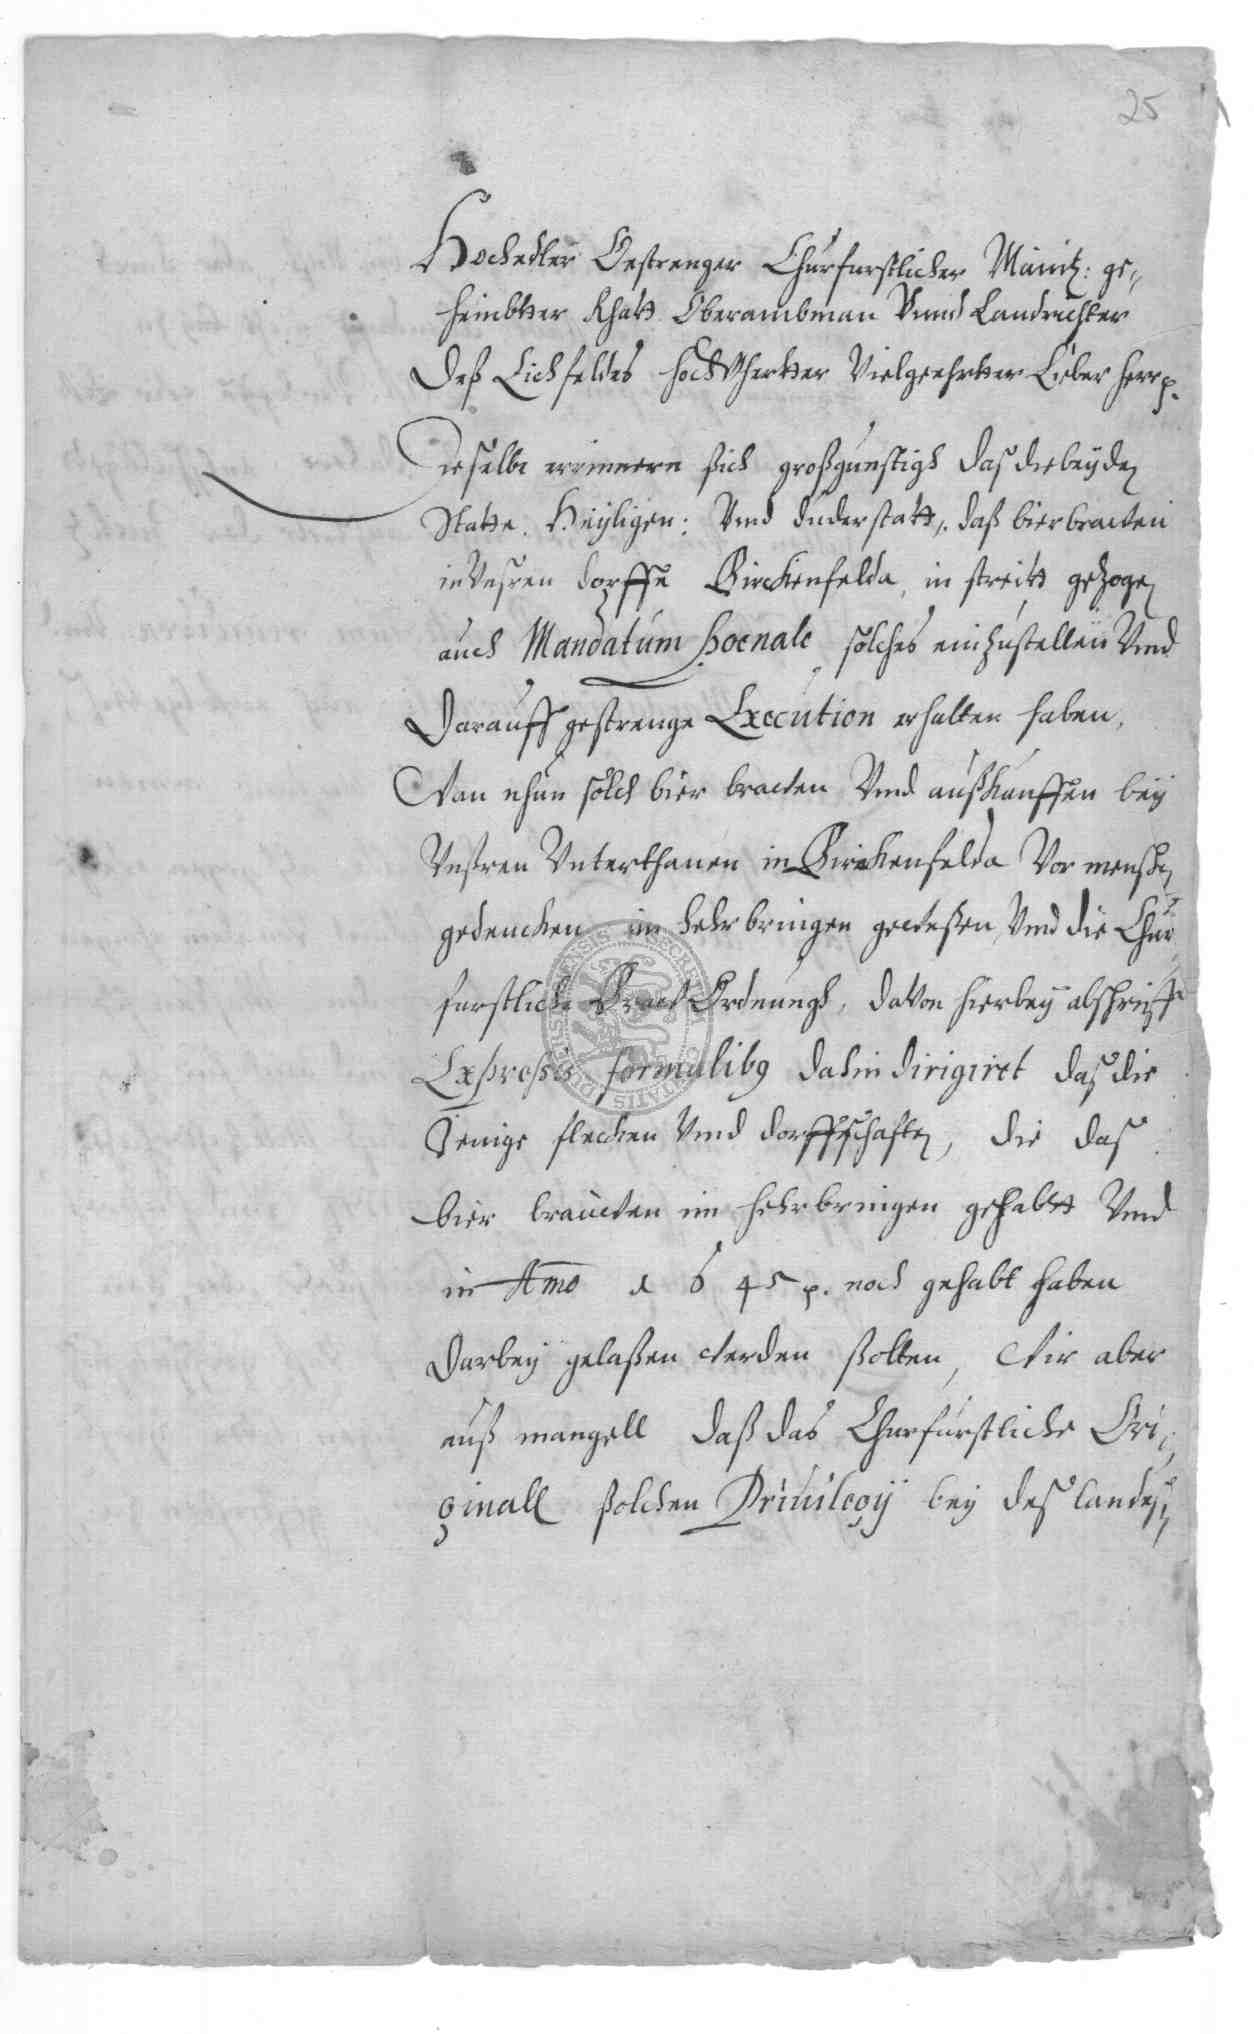 25
Hochedler Gestrenger Churfurstlicher Maintz: ge-
heimbtter Rhatt Oberambman Vnnd Landrichter
Deß Eichfeldes hochVhertter Vielgeehrtter Lieber Herr p.
Dieselbe erinnern sich großgunstigh das die beyden
Statte Heyligen: Vnd duderstatt, daß bierbrawen
in Vnsren dorffe Birckenfelda, in streitt gezogen
auch Mandatum poenale solches einzustellen Vnd
Darauff gestrenge Execution erhalten haben,
Wan nhun solch bier brawen Vnd außkauffen bey
Vnßren Vnterthanen in Birckenfelda Vor menschen
gedencken im hehrbringen geweßen, Vnd die Chur
furstliche Braw Ordnungh, davon hierbey abschrifft
Expreßis formalibg dahin dirigiret daß die
Jenige flecken Vnd dorffschafften, die das
bier brauwen im hehrbringen gehabtt Vnd
in Anno 1645 p. noch gehabt haben
Darbey gelaßen werden ßolten, Wir aber
auß mangell daß das Churfurstliche Ori-
ginall ßolchen Priuilegij bey des landes-
SECRETUM CIVITATIS DUDERSTADENSIS